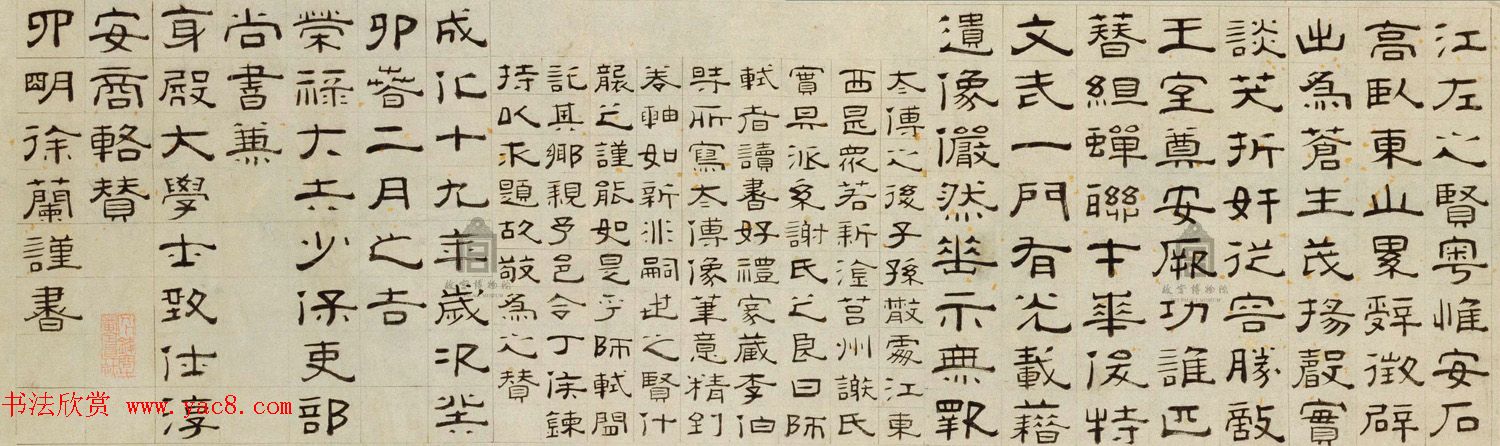 江左之賢粵惟安石
高臥東山累辭徵辟
出為蒼生茂揚聲實
談笑折奸從容勝敵
王室尊安厥功誰匹
簪組蟬聯才華俊特
文武一門有光載藉
遺像儼然垂示無斁
太傅之後子孫散處江東
西是眾若新淦莒州謝氏
實其派系謝氏之良曰師
軾者讀書好禮家藏李伯
時所寫太傅像筆意精到
卷軸如新非嗣世之賢什
襲之謹能如是乎師軾間
託其鄉親予邑令丁侯鍊
持以求題故敬為之贊
成化十九年歲次癸
卯春二月之吉
榮祿大夫少保吏部
尚書兼
身殿大學士致仕淳
安商輅贊
四明徐蘭謹書
故宫博物院
故宫博物院
书法欣赏 www.yac8.com